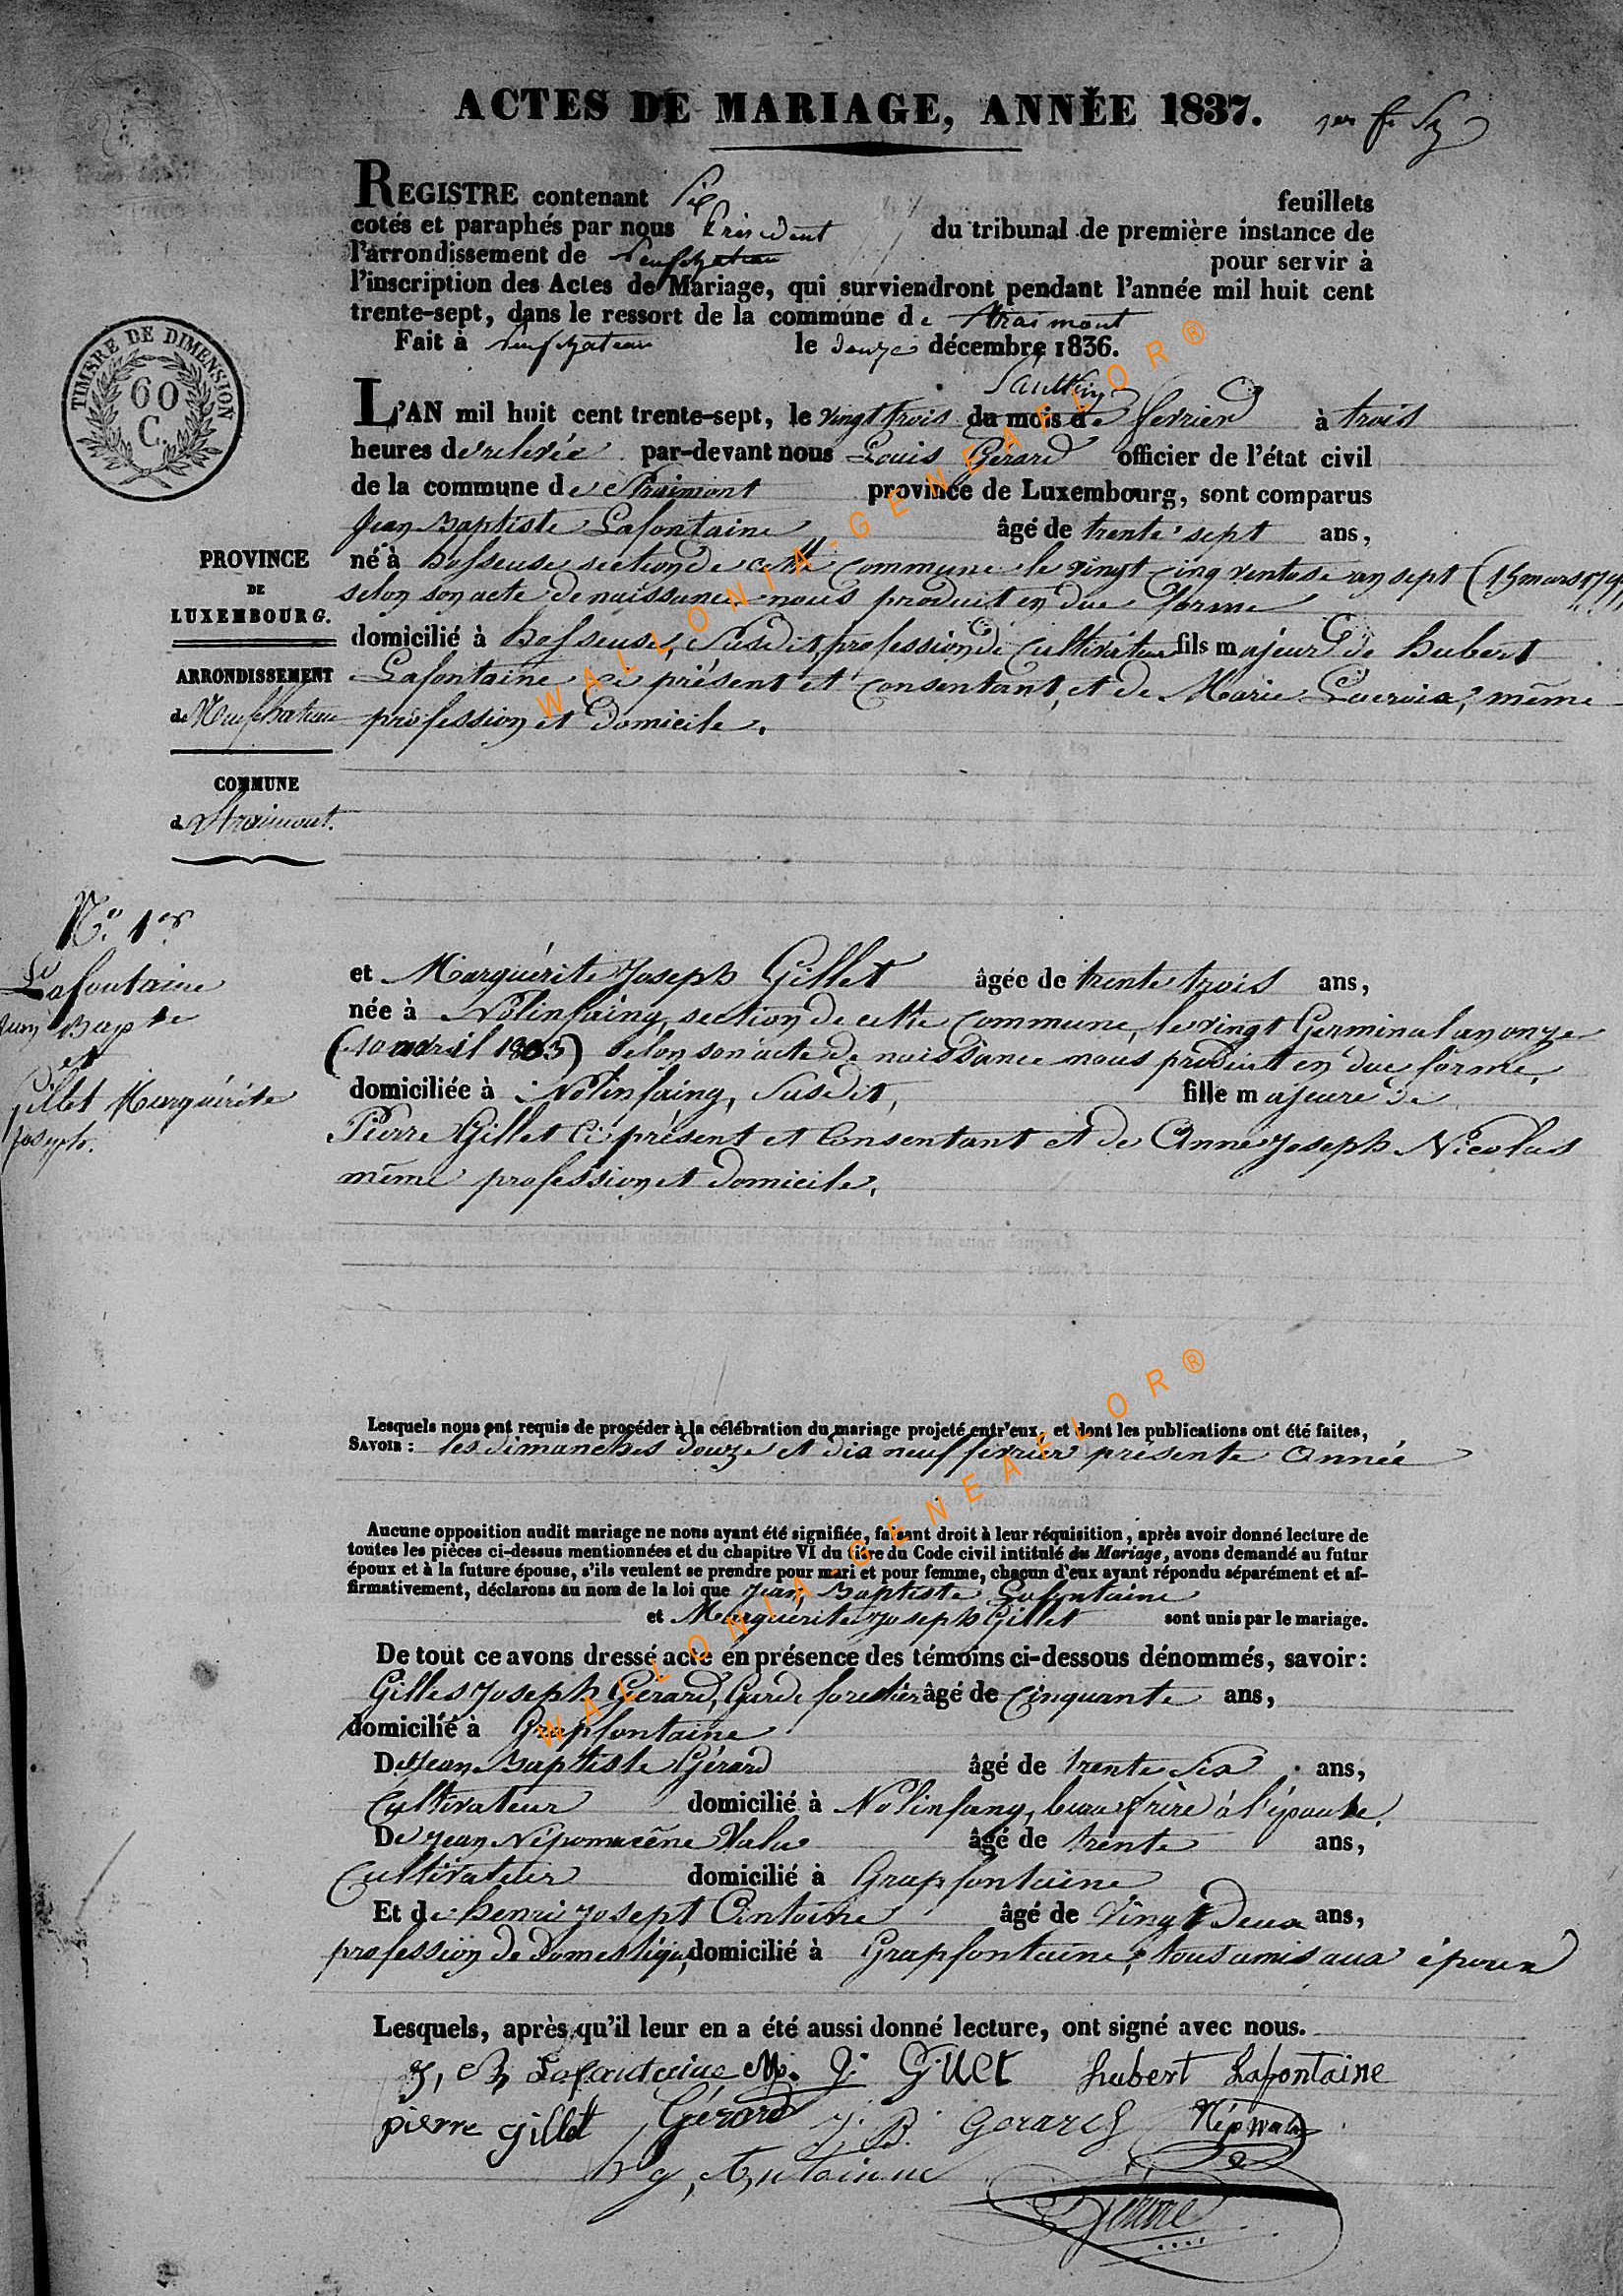 ACTES DE MARIAGE, ANNÉE 1837.
REGISTRE contenant Six feuillets
cotés et paraphés par nous Président du tribunal de première instance de
l'arrondissement de Neufchateau pour servir à
l'inscription des Actes de Mariage, qui surviendront pendant l'année mil huit cent
trente-sept, dans le ressort de la commune de Straimont
Fait à Neufchateau le douze décembre 1836.
TIMBRE DE DIMENSION
60
C.
L'AN mil huit cent trente-sept, le vingt trois du mois de fevrier à trois
heures de relevée par-devant nous Louis Gérard officier de l'état civil
de la commune de Straimont province de Luxembourg, sont comparus
Jean Baptiste Lafontaine âgé de trente sept ans,
né à hosseuse section de cette commune le vingt cinq ventose an sept (15 mars
selon son acte de naissance nous produit en due forme
domicilié à hosseuse, Susdit, profession de Cultivateur fils majeur de hubert
Lafontaine ci présent et consentant, et de Marie Lacroix, même
profession et domicile.
PROVINCE
DE
LUXEMBOURG.
ARRONDISSEMENT
de Neufchateau
COMMUNE
de Straimont.
N.º 1er
Lafontaine
Jean Bapte
et
Gillet Marguérite
Joseph.
et Marguérite Joseph Gillet âgée de trente trois ans,
née à Nolinfaing, section de cette commune, le vingt Germinal an onze
(10 avril 1803) Selon son acte de naissance nous produit en due forme,
domiciliée à Nolinfaing, Susdit, fille majeure de
Pierre Gillet Ci présent et Consentant et de Anne Joseph Nicolas
même profession et domicile.
Lesquels nous ont requis de procéder à la célébration du mariage projeté entr'eux, et dont les publications ont été faites,
SAVOIR : les dimanches douze et dix neuf fevrier présente Année
Aucune opposition audit mariage ne nous ayant été signifiée, faisant droit à leur réquisition, après avoir donné lecture de
toutes les pièces ci-dessus mentionnées et du chapitre VI du livre du Code civil intitulé du Mariage, avons demandé au futur
époux et à la future épouse, s'ils veulent se prendre pour mari et pour femme, chacun d'eux ayant répondu séparément et af-
firmativement, déclarons au nom de la loi que Jean Baptiste Lafontaine
et Marguérite Joseph Gillet sont unis par le mariage.
De tout ce avons dressé acte en présence des témoins ci-dessous dénommés, savoir:
Gilles Joseph Gérard, Garde forestier âgé de Cinquante ans,
domicilié à Grapfontaine
De Jean Baptiste Gérard âgé de trente Six ans,
Cultivateur domicilié à Nolinfang, beau frère à l'épouse.
De Jean Népomucêne Walu âgé de trente ans,
Cultivateur domicilié à Grapfontaine
Et de henri Josept Antoine âgé de Vingt Deux ans,
profession de domestique, domicilié à Grapfontaine, tous amis aux époux
Lesquels, après qu'il leur en a été aussi donné lecture, ont signé avec nous.
J, B, Lafontaine M. J. Gillet hubert Lafontaine
pierre gillet Gérard J. B. Gerard
Antoinne
WALLONIA-GENEAFLOR®
WALLONIA-GENEAFLOR®